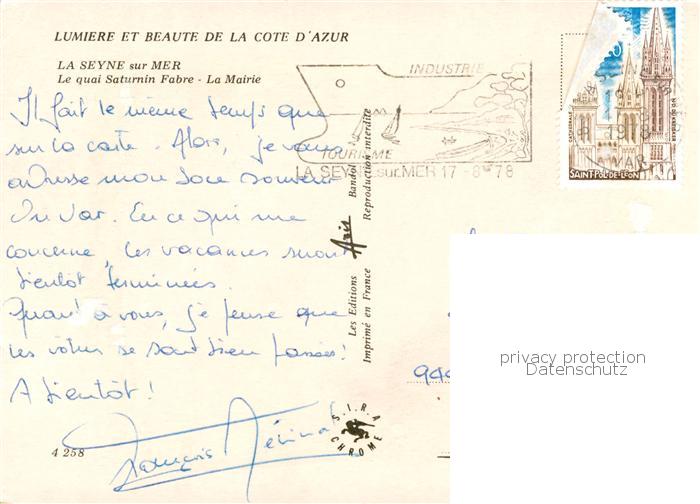 LUMIERE ET BEAUTE DE LA COTE D'AZUR
LA SEYNE sur MER
Le quai Saturnin Fabre - La Mairie
Il fait le même temps que
sur la carte. Alors, je vous
adresse mon bon souvenir
du Var. En ce qui me
concerne, les vacances seront
bientôt terminées.
Quant à vous, je pense que
les vôtres se sont bien passées!
A bientôt!
François
4 258
INDUSTRIE
TOURISME
LA SEYNE sur MER 17 - 8 78
Les Editions Aris Bandol
Imprimé en France Reproduction interdite
S.I.R.A.
CHROME
SAINT-POL-DE-LEON
1978
VAR
944
privacy protection
Datenschutz